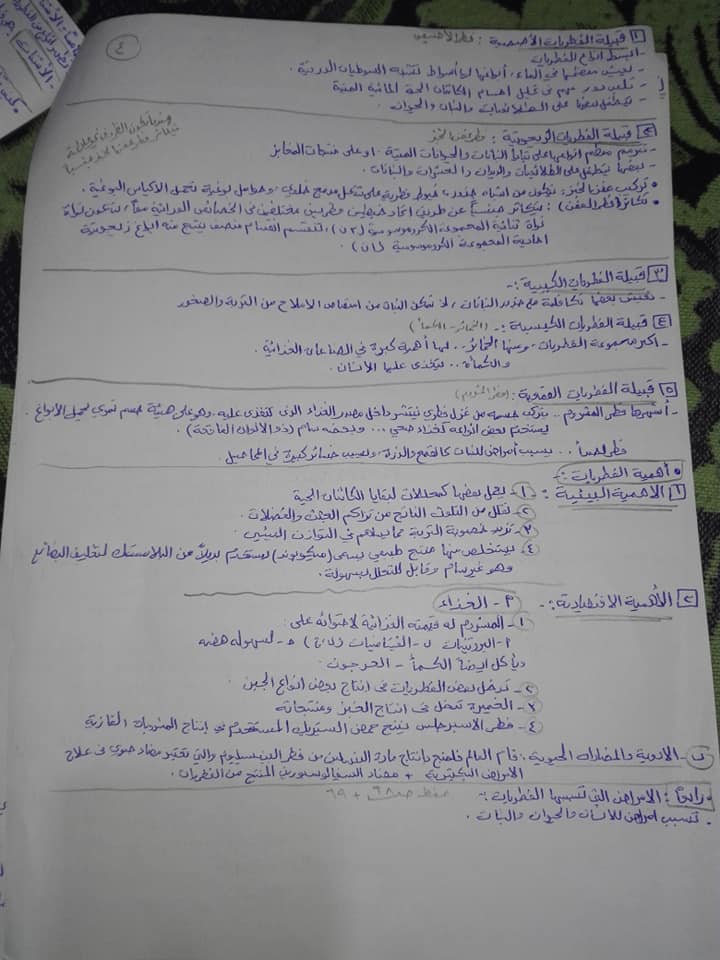 ٤
١ قبيلة الفطريات الأصيصية : فطر الأصيص
- أبسط أنواع الفطريات
- يعيش معظمها في الماء، أبواغها لها أسواط لتشبه السوطيات الدورانية
- تلعب دور مهم في تحليل أجسام الكائنات الحية المائية الميتة
- يتطفل بعضها على الطلائعيات والنبات والحيوان
٢ قبيلة الفطريات الزيجوتية : فطر عفن الخبز
- تترمم معظم أنواعها على بقايا النباتات والحيوانات الميتة .. أو على منتجات المخابز
- بعضها يتطفل على الطلائعيات والديدان والحشرات والنباتات
• تركيب عفن الخبز : يتكون من أشباه جذور، خيوط فطرية على شكل مدمج خلوي، وحوامل بوغية تحمل الأكياس البوغية .
• تكاثر (فطر العفن) : يتكاثر جنسياً عن طريق اتحاد خيطين فطريين مختلفين في الخصائص الوراثية معاً، فتتكون نواة
نواة ثنائية المجموعة الكروموسومية (٢ن)، لتنقسم انقسام منصف ينتج منه أبواغ زيجوتية
أحادية المجموعة الكروموسومية (١ن)
٣ قبيلة الفطريات الكبيبية :-
- تعيش بعضها تكافلية مع جذور النباتات، لا تمكن النبات من امتصاص الأملاح من التربة والصخور
٤ قبيلة الفطريات الكيسية :- (الخمائر - الكمأ)
- أكبر مجموعة الفطريات، ومنها الخمائر .. لها أهمية كبيرة في الصناعات الغذائية .
والكمأة .. يتغذى عليها الإنسان .
٥ قبيلة الفطريات العمودية : (فطر المشروم)
- أشهرها فطر المشروم .. يتركب جسمه من غزل فطري ينتشر داخل مصدر الغذاء الذي تتغذى عليه . وهو على هيئة جسم ثمري تحمل الأبواغ .
يستخدم بعض أنواعه كغذاء صحي ... وبعضه سام (ذو الألوان الفاتحة) .
فطر الصدأ .. يسبب أمراض للنبات كالقمح والذرة، ويسبب خسائر كبيرة في المحاصيل
• أهمية الفطريات :-
١ الأهمية البيئية : ١- يعمل بعضها كمحللات لبقايا الكائنات الحية
٢- تقلل من التلوث الناتج من تراكم الجثث والفضلات .
٣- تزيد خصوبة التربة مما يساهم في التوازن البيئي
٤- يستخلص منها منتج طبيعي يسمى (ميكوبوند) يستخدم بديلاً عن البلاستيك لتغليف البضائع
وهو غير سام وقابل للتحلل بسهولة .
٢ الأهمية الاقتصادية :- أ- الغذاء
١- المشروم له قيمته الغذائية لاحتوائه على :
أ- البروتينات ب- الفيتامينات ج- لسهولة هضمه
ويأكل أيضاً الكمأ - العرجون .
٢- تدخل بعض الفطريات في إنتاج بعض أنواع الجبن
٣- الخميرة تدخل في إنتاج الخبز ومنتجاته
٤- فطر الاسبرجلس ينتج حمض الستريك المستخدم في إنتاج المشروبات الغازية
ب- الأدوية والمضادات الحيوية : قام العالم فلمنج بإنتاج مادة البنسلين من فطر البنيسيليوم والتي تعتبر مضاد حيوي في علاج
الأمراض البكتيرية + مضاد السفالوسبورين المنتج من الفطريات .
• رابعاً : الأمراض التي تسببها الفطريات :-
- تسبب أمراض للإنسان والحيوان والنبات .